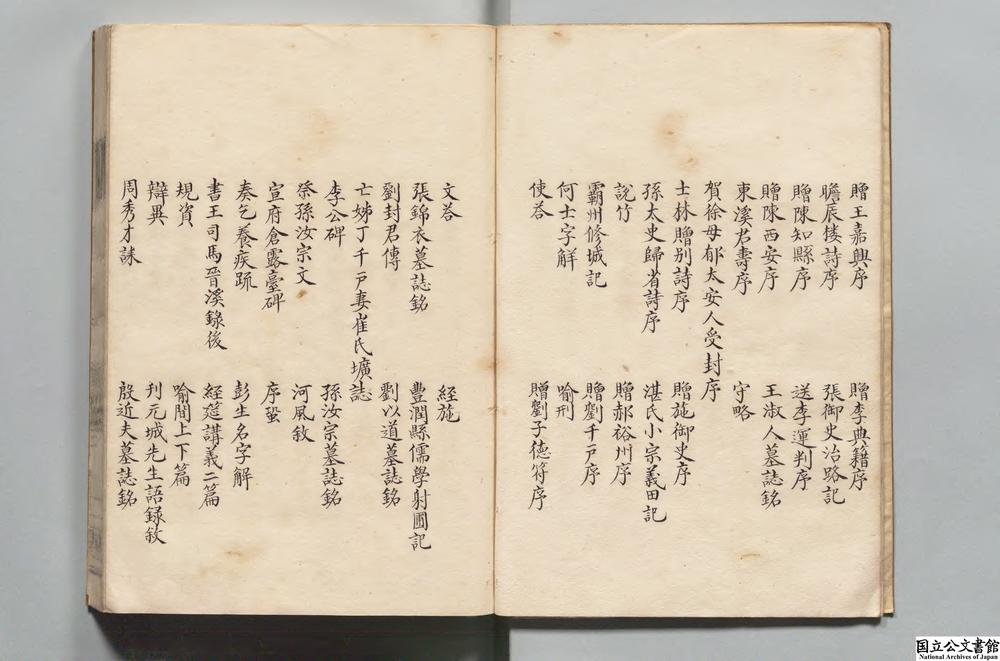 贈王嘉興序　贈李典籍序
瞻辰楼詩序　張御史治路記
贈陳知縣序　送李運判序
贈陳西安序　王淑人墓誌銘
東溪君壽序　守略
賀徐母郁太安人受封序
士林贈別詩序　贈施御史序
孫太史歸省詩序　湛氏小宗義田記
說竹　贈郝裕州序
霸州修城記　贈劉千戶序
何士字解　喻刑
使荅　贈劉子德符序
文荅　經施
張錦衣墓誌銘　豐潤縣儒學射圃記
劉封君傳　劉以道墓誌銘
亡姊丁千戶妻崔氏壙誌
李公碑　孫汝宗墓誌銘
祭孫汝宗文　河風敘
宣府倉露臺碑　序蛩
奏乞養疾疏　彭生名字解
書王司馬晉溪錄後　經筵講義二篇
規資　喻問上下篇
辯異　刊元城先生語録敘
周秀才誄　殷近夫墓誌銘
国立公文書館
National Archives of Japan